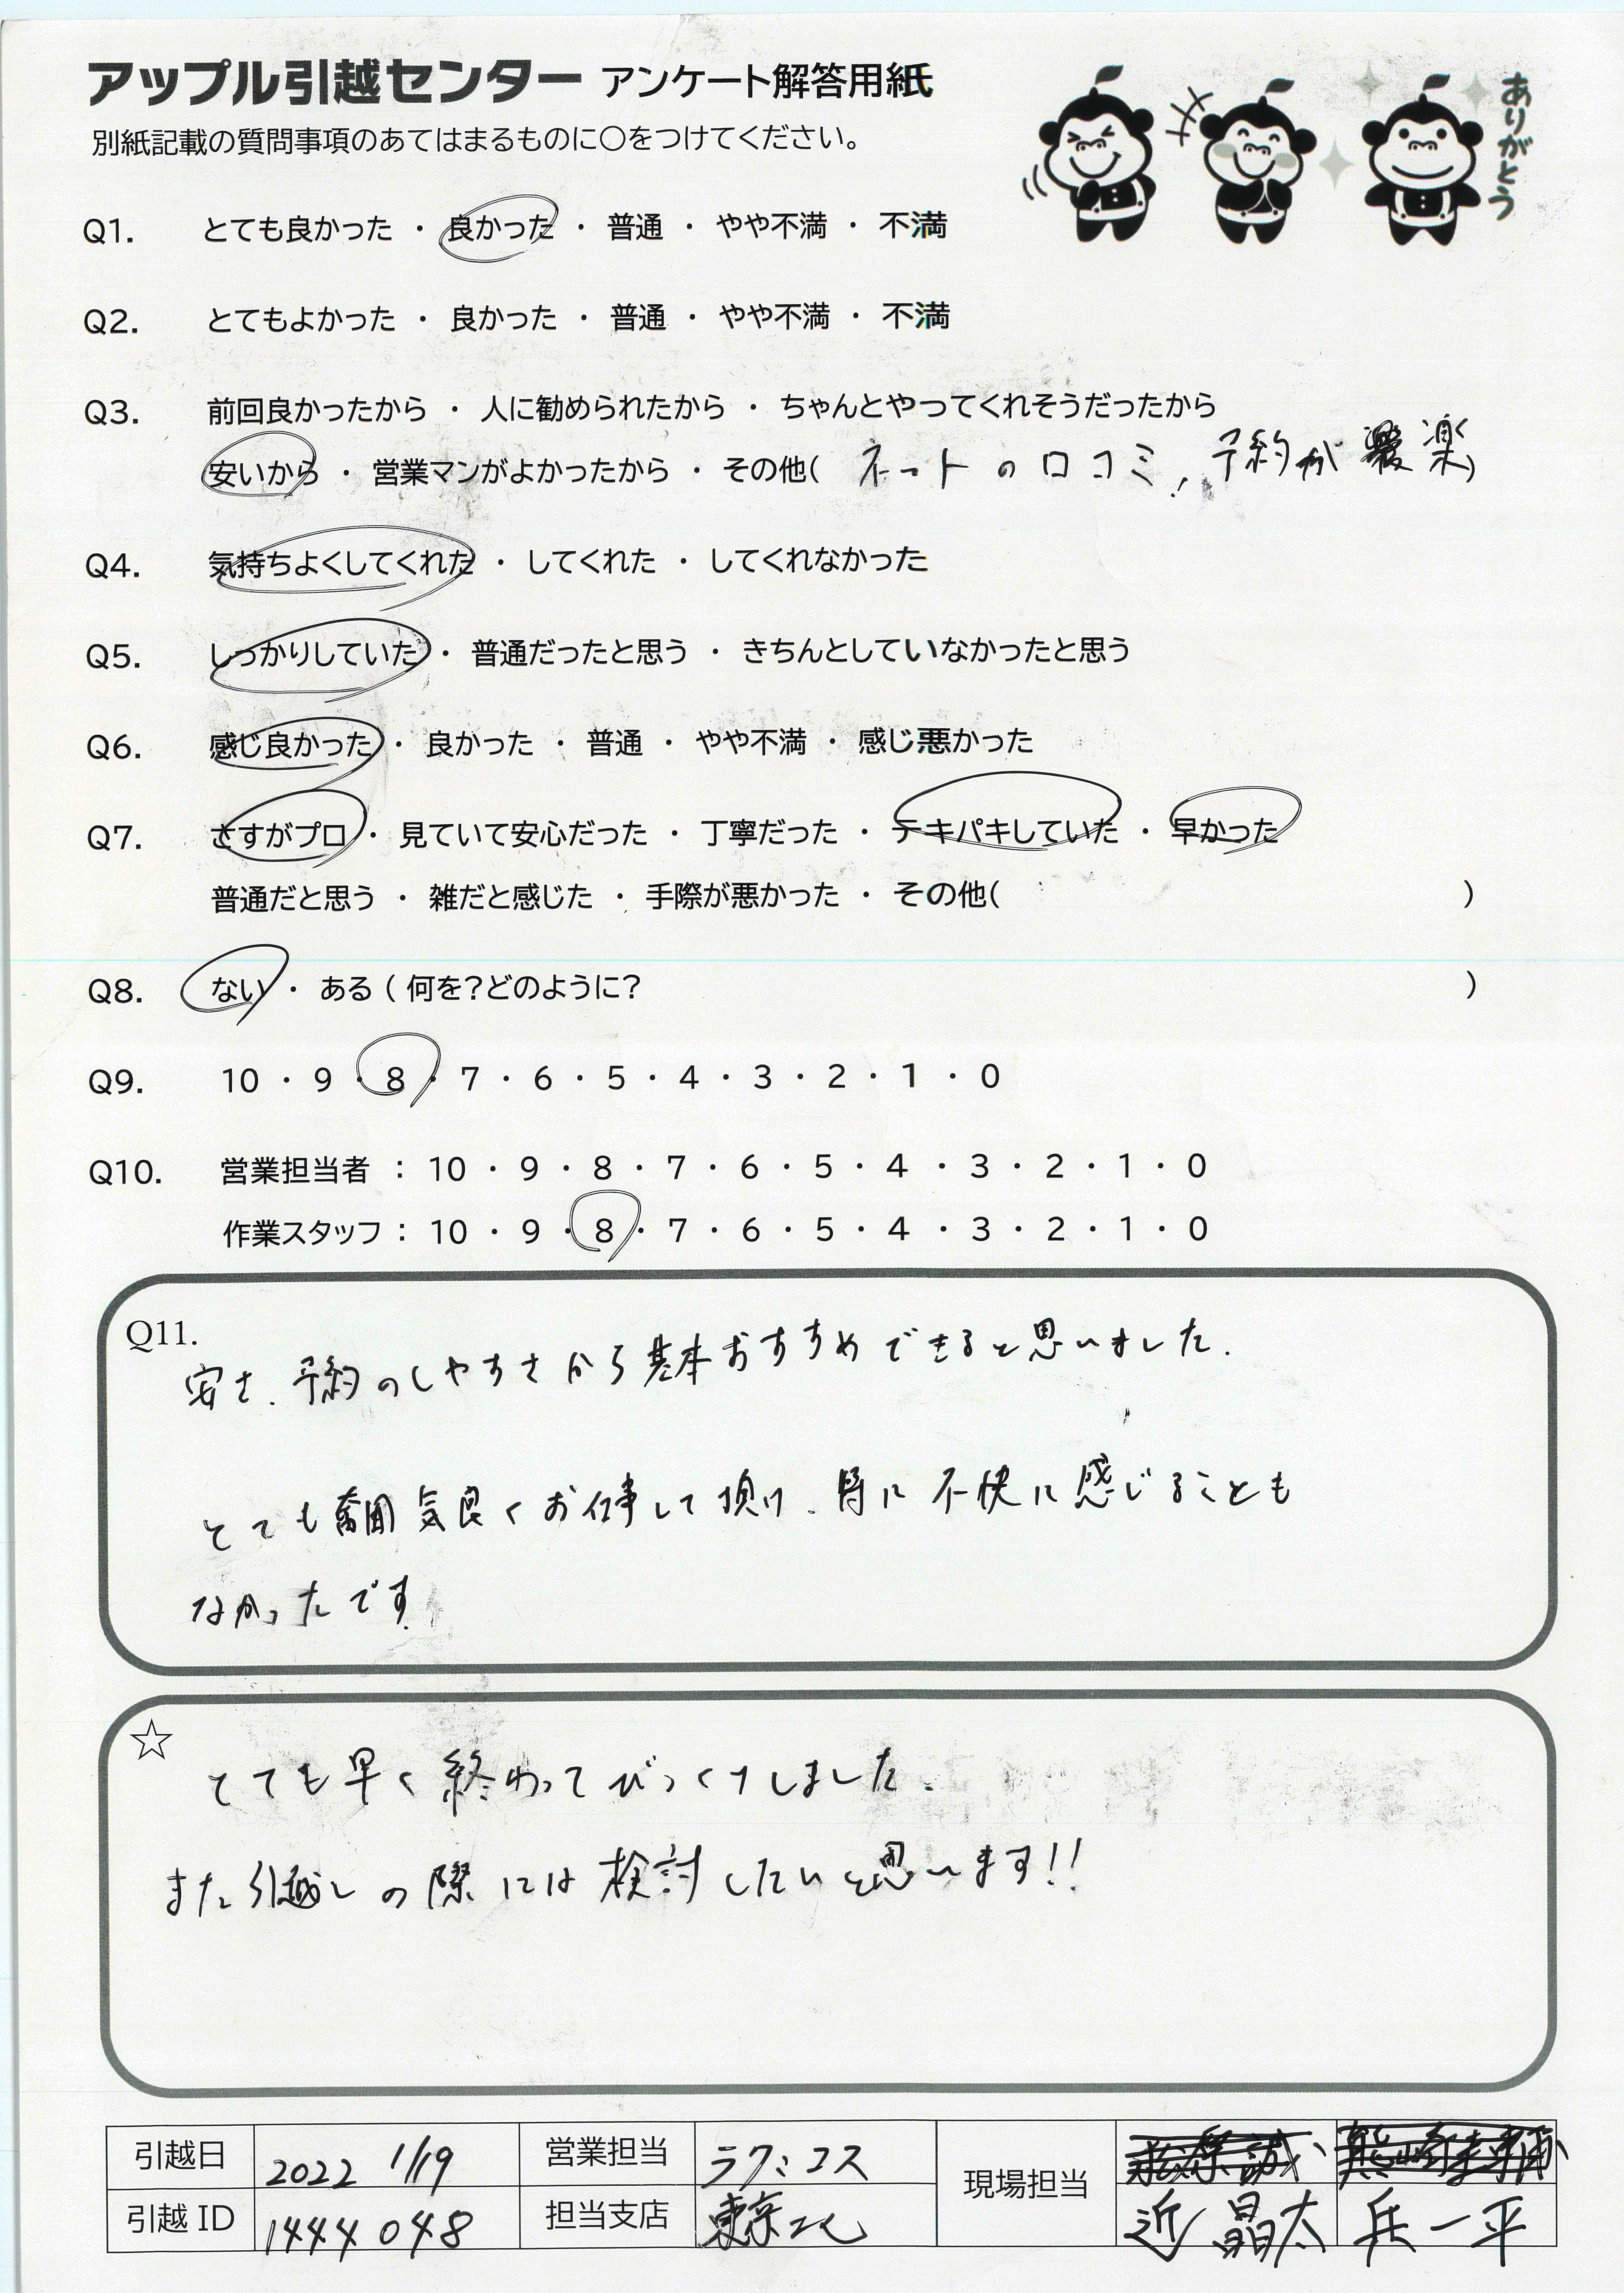 アップル引越センター アンケート解答用紙
ありがとう
別紙記載の質問事項のあてはまるものに○をつけてください。
Q1. とても良かった ・ 良かった ・ 普通 ・ やや不満 ・ 不満
Q2. とてもよかった ・ 良かった ・ 普通 ・ やや不満 ・ 不満
Q3. 前回良かったから ・ 人に勧められたから ・ ちゃんとやってくれそうだったから
安いから ・ 営業マンがよかったから ・ その他( ネットの口コミ、予約が楽)
Q4. 気持ちよくしてくれた ・ してくれた ・ してくれなかった
Q5. しっかりしていた ・ 普通だったと思う ・ きちんとしていなかったと思う
Q6. 感じ良かった ・ 良かった ・ 普通 ・ やや不満 ・ 感じ悪かった
Q7. さすがプロ ・ 見ていて安心だった ・ 丁寧だった ・ テキパキしていた ・ 早かった
普通だと思う ・ 雑だと感じた ・ 手際が悪かった ・ その他( )
Q8. ない ・ ある ( 何を?どのように? )
Q9. 10 ・ 9 ・ 8 ・ 7 ・ 6 ・ 5 ・ 4 ・ 3 ・ 2 ・ 1 ・ 0
Q10. 営業担当者 : 10 ・ 9 ・ 8 ・ 7 ・ 6 ・ 5 ・ 4 ・ 3 ・ 2 ・ 1 ・ 0
作業スタッフ : 10 ・ 9 ・ 8 ・ 7 ・ 6 ・ 5 ・ 4 ・ 3 ・ 2 ・ 1 ・ 0
Q11.
安さ、予約のしやすさから基本おすすめできると思いました.
とても雰囲気良くお仕事して頂け、特に不快に感じることも
なかったです.
☆
とても早く終わってびっくりしました.
また引越しの際には検討したいと思います!!
引越日 2022 1/19 営業担当 ラクニコス 現場担当
引越 ID 1444048 担当支店 東京 近 晶太 兵 一平